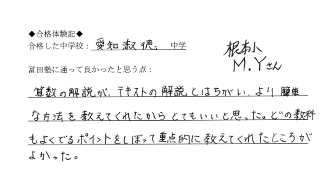 ◆合格体験記◆
合格した中学校： 愛知淑徳 中学
根本小
M.Yさん
冨田塾に通って良かったと思う点：
算数の解説が、テキストの解説とはちがい、より簡単
な方法を教えてくれたからとてもいいと思った。どの教科
もよくでるポイントをしぼって重点的に教えてくれたところが
よかった。